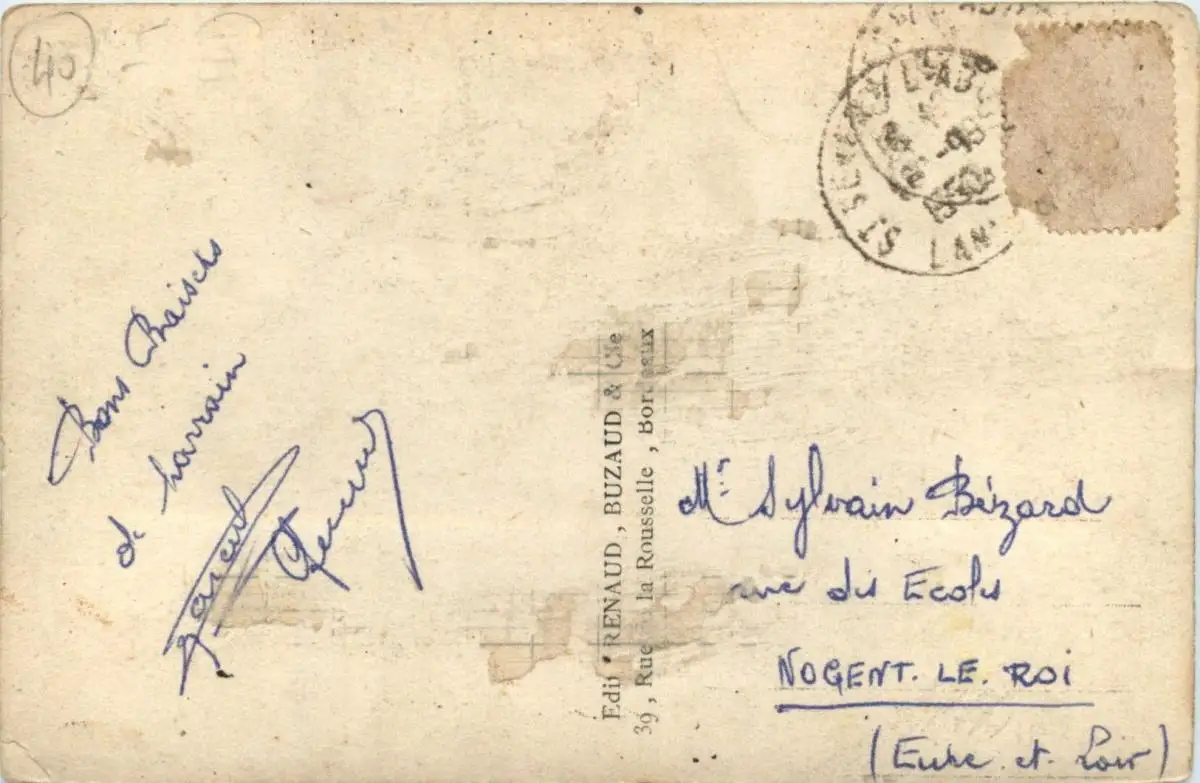 40
Bons Baisers
de parrain
Édit. RENAUD, BUZAUD & Cie
39, Rue la Rousselle, Bordeaux
Mr Sylvain Bézard
rue des Ecoles
NOGENT. LE. ROI
(Eure et Loir)
ST SEVER
LAN